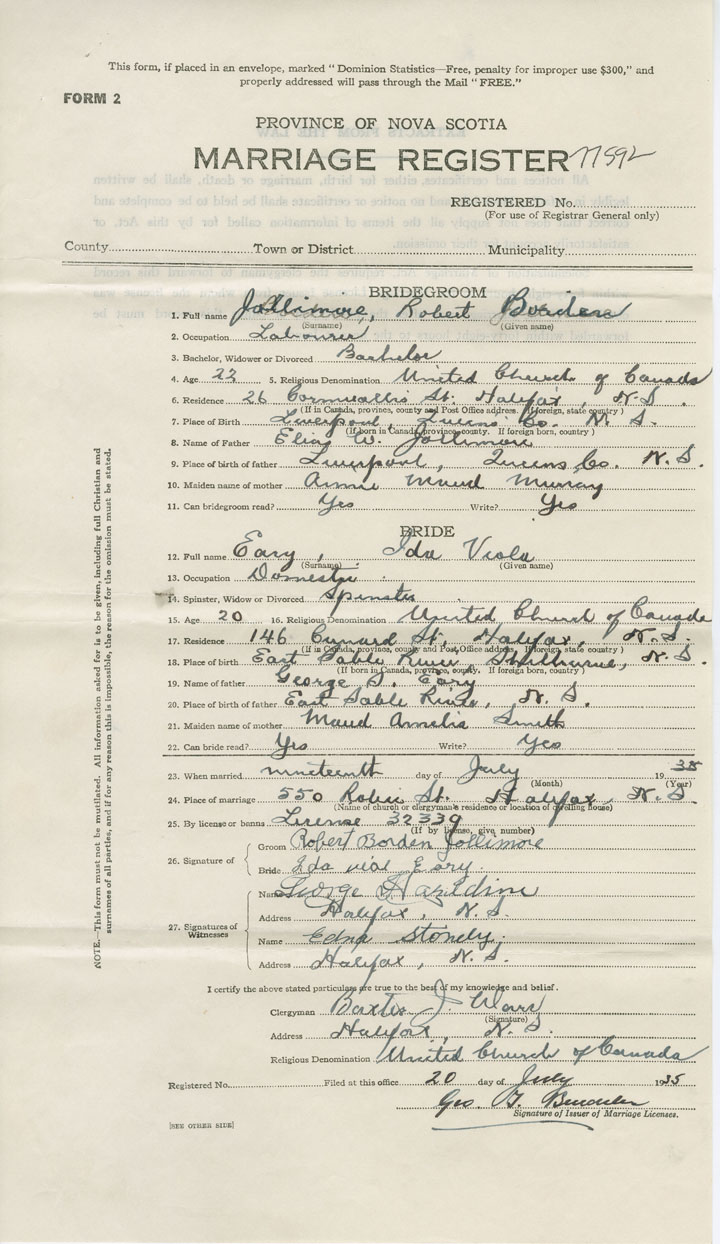 This form, if placed in an envelope, marked " Dominion Statistics—Free, penalty for improper use $300," and
properly addressed will pass through the Mail " FREE."
FORM 2
PROVINCE OF NOVA SCOTIA
MARRIAGE REGISTER 77592
REGISTERED No.
(For use of Registrar General only)
County Town or District Municipality
BRIDEGROOM
1. Full name Jollimore, Robert Borden
(Surname) (Given name)
2. Occupation Labourer
3. Bachelor, Widower or Divorced Bachelor
4. Age 22 5. Religious Denomination United Church of Canada
6. Residence 26 Cornwallis St. Halifax, N.S.
(If in Canada, province, county and Post Office address. If foreign, state country )
7. Place of Birth Liverpool, Queens Co. N. S.
(If born in Canada, province, county. If foreign born, country )
8. Name of Father Elias W. Jollimore
9. Place of birth of father Liverpool, Queens Co. N. S.
10. Maiden name of mother Annie Maud Murray
11. Can bridegroom read? Yes Write? Yes
BRIDE
12. Full name Eary, Ida Viola
(Surname) (Given name)
13. Occupation Domestic
14. Spinster, Widow or Divorced Spinster
15. Age 20 16. Religious Denomination United Church of Canada
17. Residence 146 Cunard St. Halifax, N. S.
(If in Canada, province, county and Post Office address. If foreign, state country )
18. Place of birth East Sable River, Shelburne, N. S.
(If born in Canada, province, county. If foreign born, country )
19. Name of father George S. Eary
20. Place of birth of father East Sable River, N. S.
21. Maiden name of mother Maud Amelia Smith
22. Can bride read? Yes Write? Yes
23. When married nineteenth day of July 19 35
(Month) (Year)
24. Place of marriage 550 Robie St. Halifax, N. S.
(Name of church or clergyman's residence or location of dwelling house)
25. By license or banns License 32339
(If by license, give number)
26. Signature of Groom Robert Borden Jollimore
Bride Ida vial Eary
27. Signatures of Witnesses
Name George Hazeldine
Address Halifax, N. S.
Name Edna Stoney
Address Halifax, N. S.
I certify the above stated particulars are true to the best of my knowledge and belief.
Clergyman Baxter J.
(Signature)
Address Halifax, N. S.
Religious Denomination United Church of Canada
Registered No. Filed at this office 20 day of July 1935
Geo. T.
Signature of Issuer of Marriage Licenses.
[SEE OTHER SIDE]
NOTE.—This form must not be mutilated. All information asked for is to be given, including full Christian and
surnames of all parties, and if for any reason this is impossible, the reason for the omission must be stated.